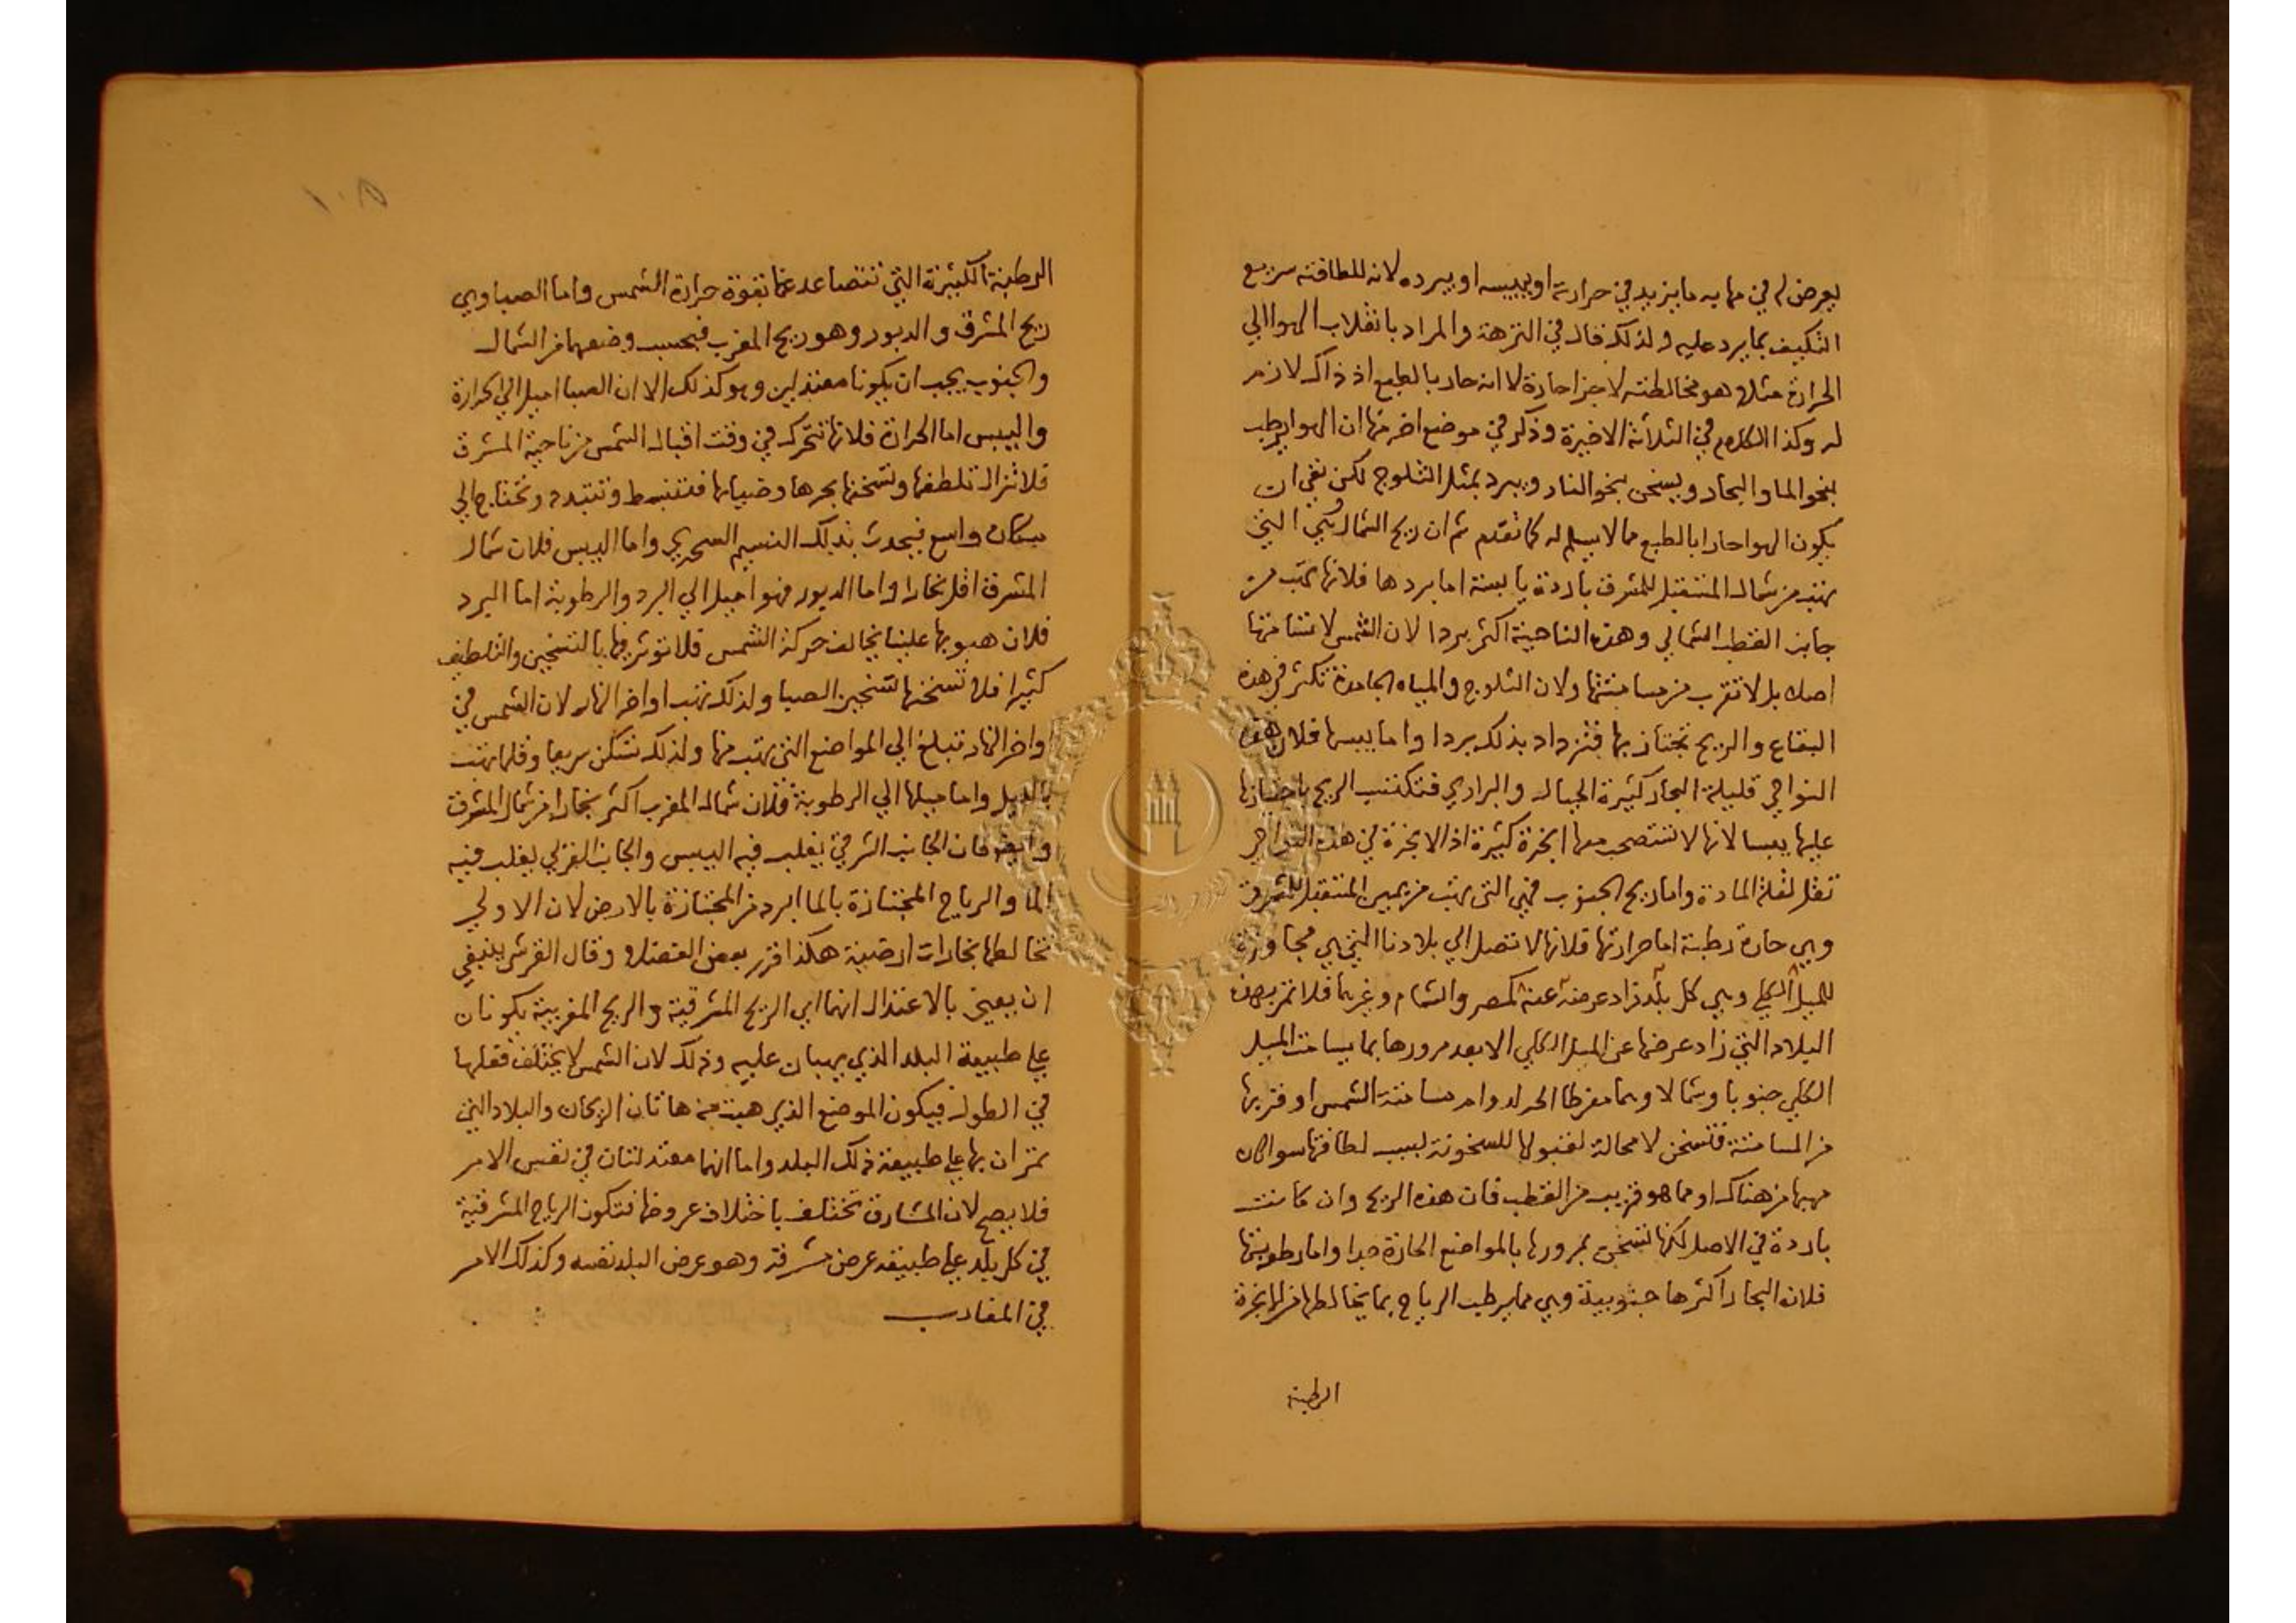 يعرض له في مهابه ما يزيد في حرارته او يبيسه او يبرده لانه للطافته سريع
التكيف بما يرد عليه ولذلك قال في النزهة والمراد بانقلاب الهوا الي
الحرارة مثلا هو مخالطته لاجزا حارة لا انه حار بالطبع اذ ذاك لازم
له وكذا الكلام في الثلاثة الاخيرة وذكر في موضع اخر منها ان الهوا يرطب
بنحو الما والبحار ويسخن بنحو النار ويبرد بمثل الثلوج لكن نفي ان
يكون الهوا حارا بالطبع مما لا يسلم له كما تقدم ثم ان ريح الشمال وهي التي
تهب من شمال المستقبل للمشرق باردة يابسة اما بردها فلانها تهب من
جانب القطب الشمالي وهذه الناحية اكثر بردا لان الشمس لا تسامتها
اصلا بل لا تقرب من مسامتتها ولان الثلوج والمياه الجامدة تكثر في هذه
البقاع والريح تجتاز بها فتزداد بذلك بردا واما يبسها فلان هذه
النواحي قليلة البحار كثيرة الجبال والبراري فتكتسب الريح باجتيازها
عليها يبسا لانها لا تستصحب معها ابخرة كثيرة اذ الابخرة في هذه النواحي
تقل لقلة المادة واما ريح الجنوب فهي التي تهب من يمين المستقبل للمشرق
وهي حارة رطبة اما حرارتها فلانها لا تصل الي بلادنا التي هي مجاوزة
للميل الكلي وهي كل بلد زاد عرضه عنه كمصر والشام وغيرهما فلا تمر بهذه
البلاد التي زاد عرضها عن الميل الكلي الا بعد مرورها بما يسامت الميل
الكلي جنوبا وشمالا وهما مفرطا الحر لدوام مسامتة الشمس او قربها
من المسامتة فتسخن لا محالة لقبولها للسخونة لسبب لطافتها سوا كان
مهبها من هناك او مما هو قريب من القطب فان هذه الريح وان كانت
باردة في الاصل لكنها تسخن بمرورها بالمواضع الحارة جدا واما رطوبتها
فلان البحار اكثرها جنوبية وهي مما يرطب الرياح بما يخالطها من الابخرة
الرطبة
١٠٥
الرطبة الكثيرة التي تتصاعد عنها بقوة حرارة الشمس واما الصبا وهي
ريح المشرق والدبور وهو ريح المغرب فبحسب وضعهما من الشمال
والجنوب يجب ان يكونا معتدلين وهو كذلك الا ان الصبا اميل الي الحرارة
واليبس اما الحرارة فلانها تتحرك في وقت اقبال الشمس من ناحية المشرق
فلا تزال تلطفها وتسخنها بحرها وضيايها فتنبسط وتتبدد وتحتاج الي
مكان واسع فيحدث بذلك النسيم السحري واما اليبس فلان شمال
المشرق اقل بخارا واما الدبور فهو اميل الي البرد والرطوبة اما البرد
فلان هبوبها علينا يخالف حركة الشمس فلا توثر فيها بالتسخين والتلطيف
كثيرا فلا تسخنها تسخين الصبا ولذلك تهب اواخر النهار لان الشمس في
اواخر النهار تبلغ الي المواضع التي تهب منها ولذلك تسكن سريعا وقلما تهب
بالليل واما ميلها الي الرطوبة فلان شمال المغرب اكثر بخارا من شمال المشرق
وايضا فان الجانب الشرقي يغلب فيه اليبس والجانب الغربي يغلب فيه
الما والرياح المجتازة بالما ابرد من المجتازة بالارض لان الاولي
تخالطها بخارات ارضية هكذا قرر بعض الفضلا وقال القرشي ينبغي
ان يعني بالاعتدال انهما اي الريح المشرقية والريح المغربية يكونان
علي طبيعة البلد الذي يهبان عليه وذلك لان الشمس لا يختلف فعلها
في الطول فيكون الموضع الذي هبت منه هاتان الريحان والبلاد التي
تمران بها علي طبيعة ذلك البلد واما انهما معتدلتان في نفس الامر
فلا يصح لان المشارق تختلف باختلاف عروضها فتكون الرياح المشرقية
في كل بلد علي طبيعة عرض مشرقه وهو عرض البلد نفسه وكذلك الامر
في المغارب